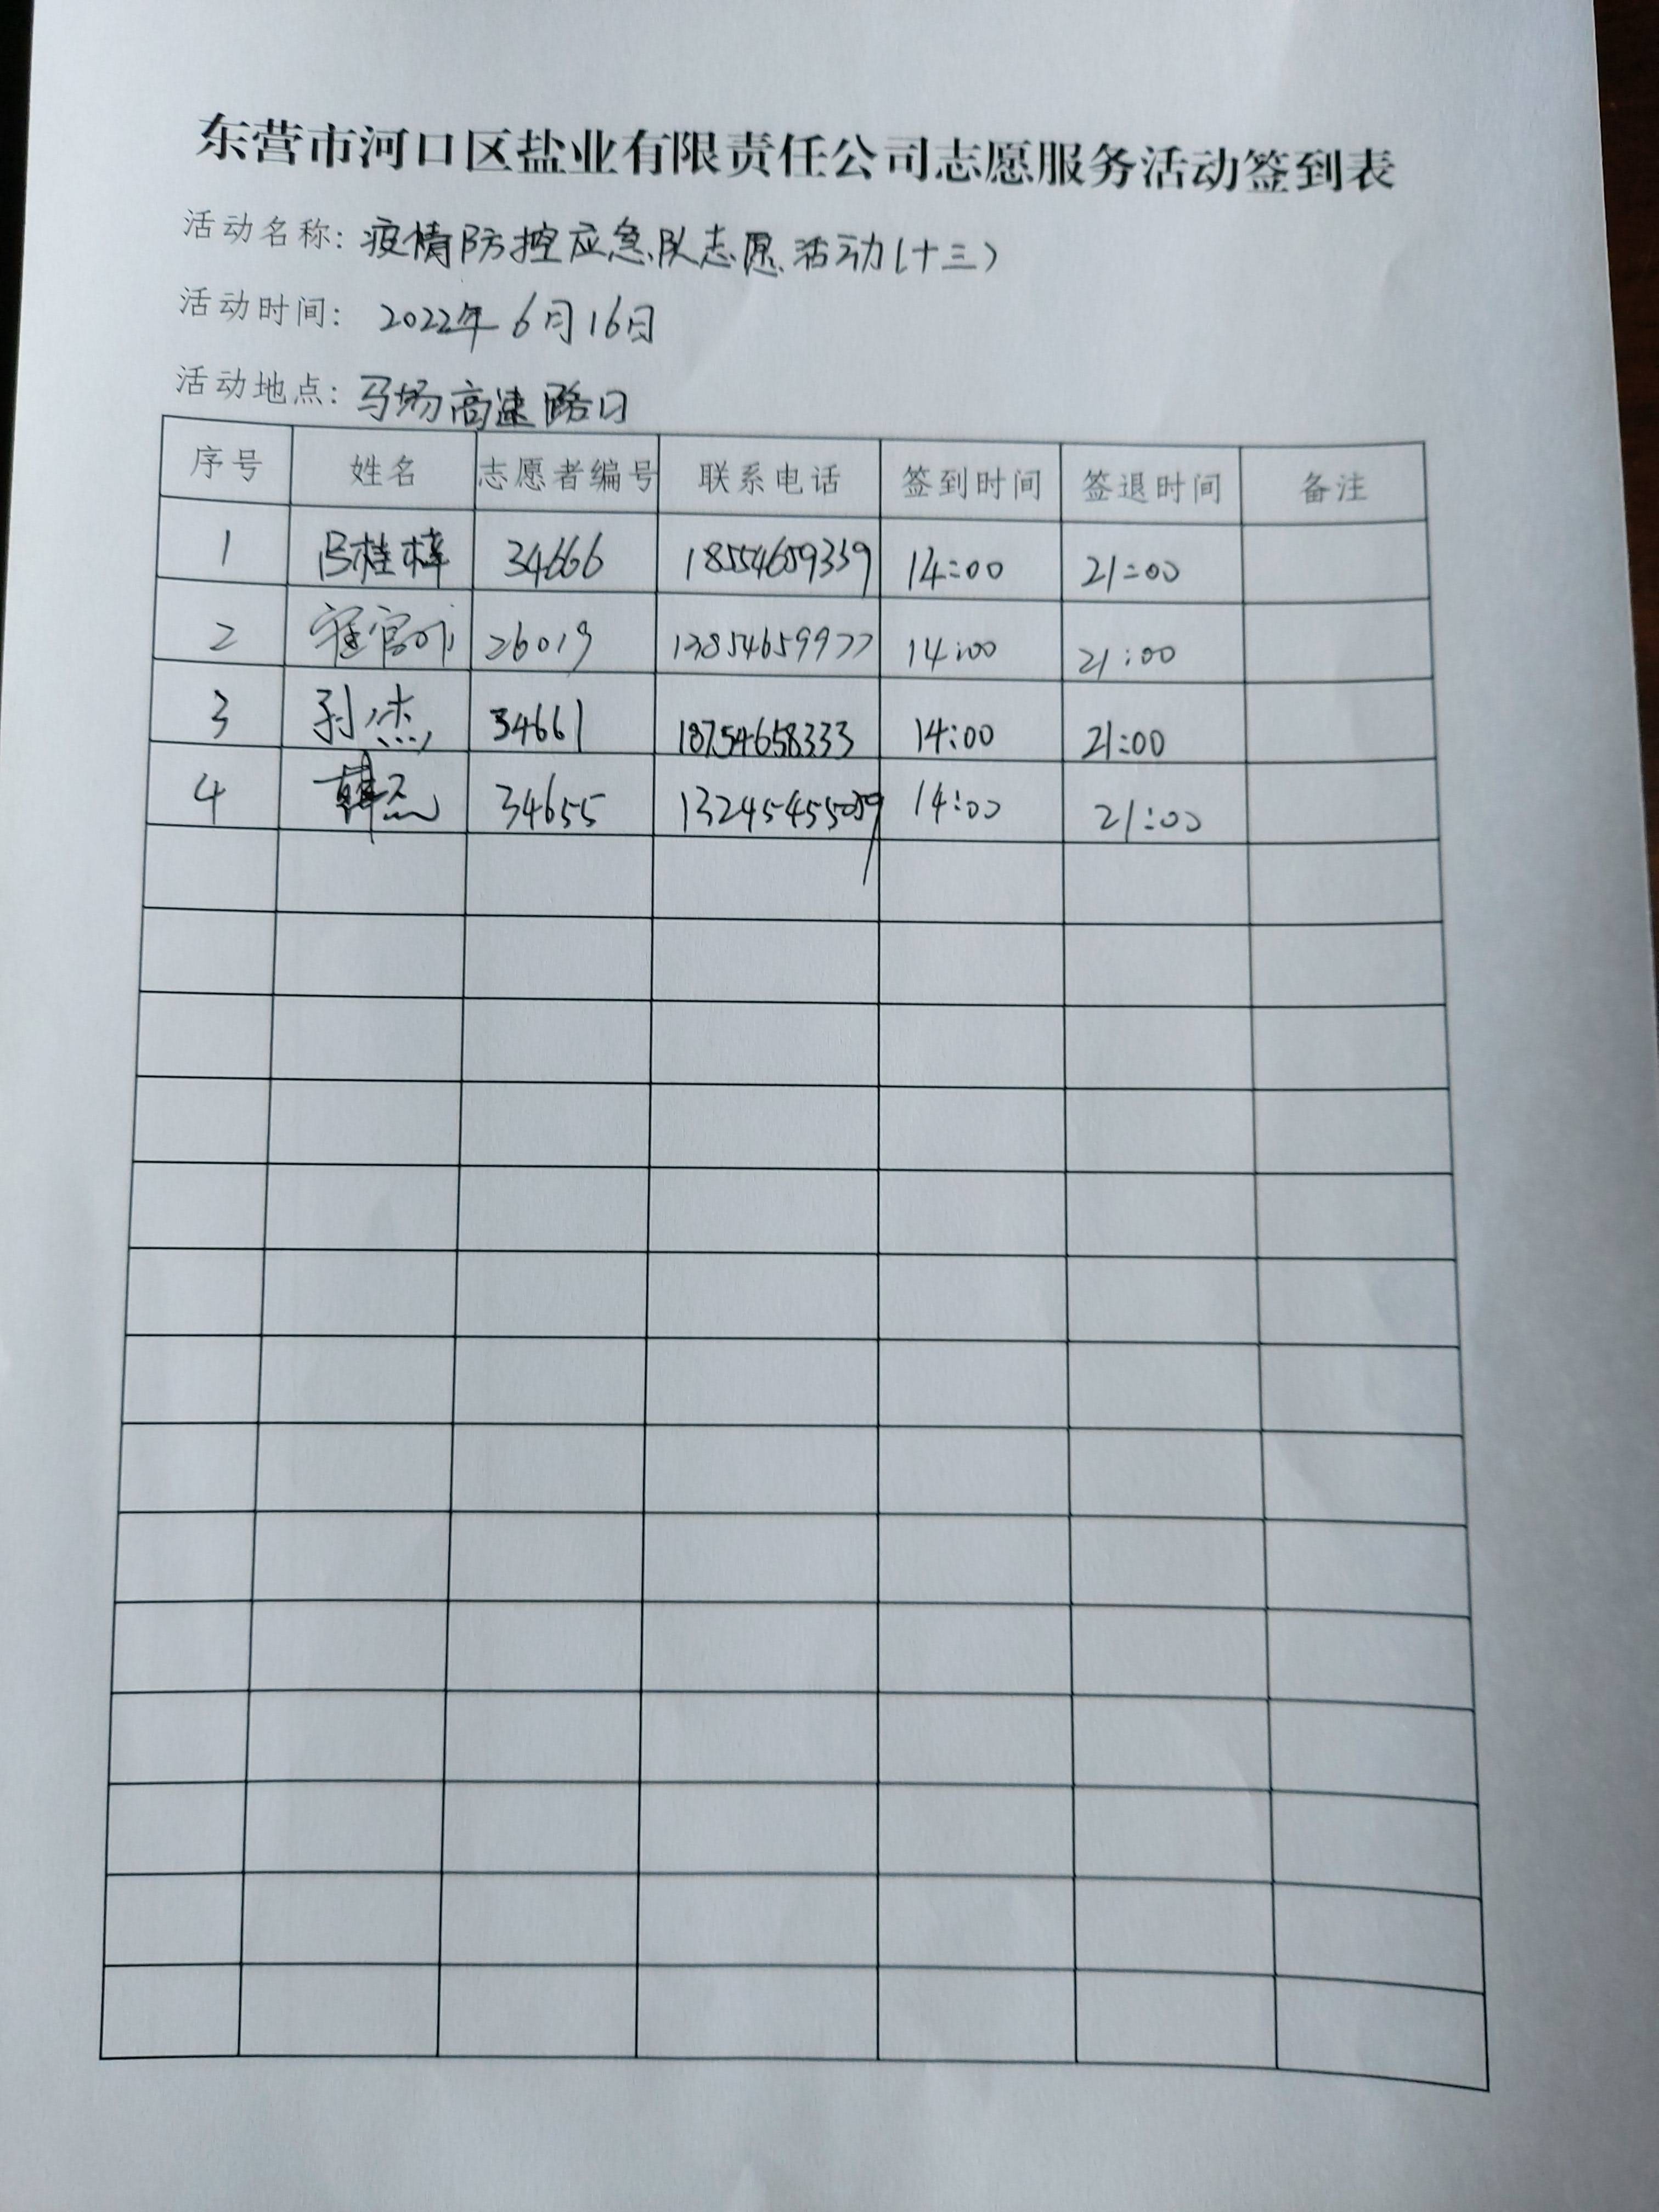 东营市河口区盐业有限责任公司志愿服务活动签到表
活动名称: 疫情防控应急队志愿活动(十三)
活动时间: 2022年6月16日
活动地点: 马场高速路口
序号 姓名 志愿者编号 联系电话 签到时间 签退时间 备注
1 34666 18554659339 14:00 21:00
2 26019 13854659977 14:00 21:00
3 孙杰 34661 18754658333 14:00 21:00
4 34655 14:00 21:00